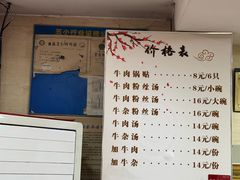 五小行业信息公
价格表
牛肉锅贴 8元/6只
牛肉粉丝汤 8元/小碗
牛肉粉丝汤 16元/大碗
牛杂粉丝汤 14元/碗
牛肉汤 14元/碗
牛杂汤 14元/碗
加牛肉 14元/份
加牛杂 14元/份